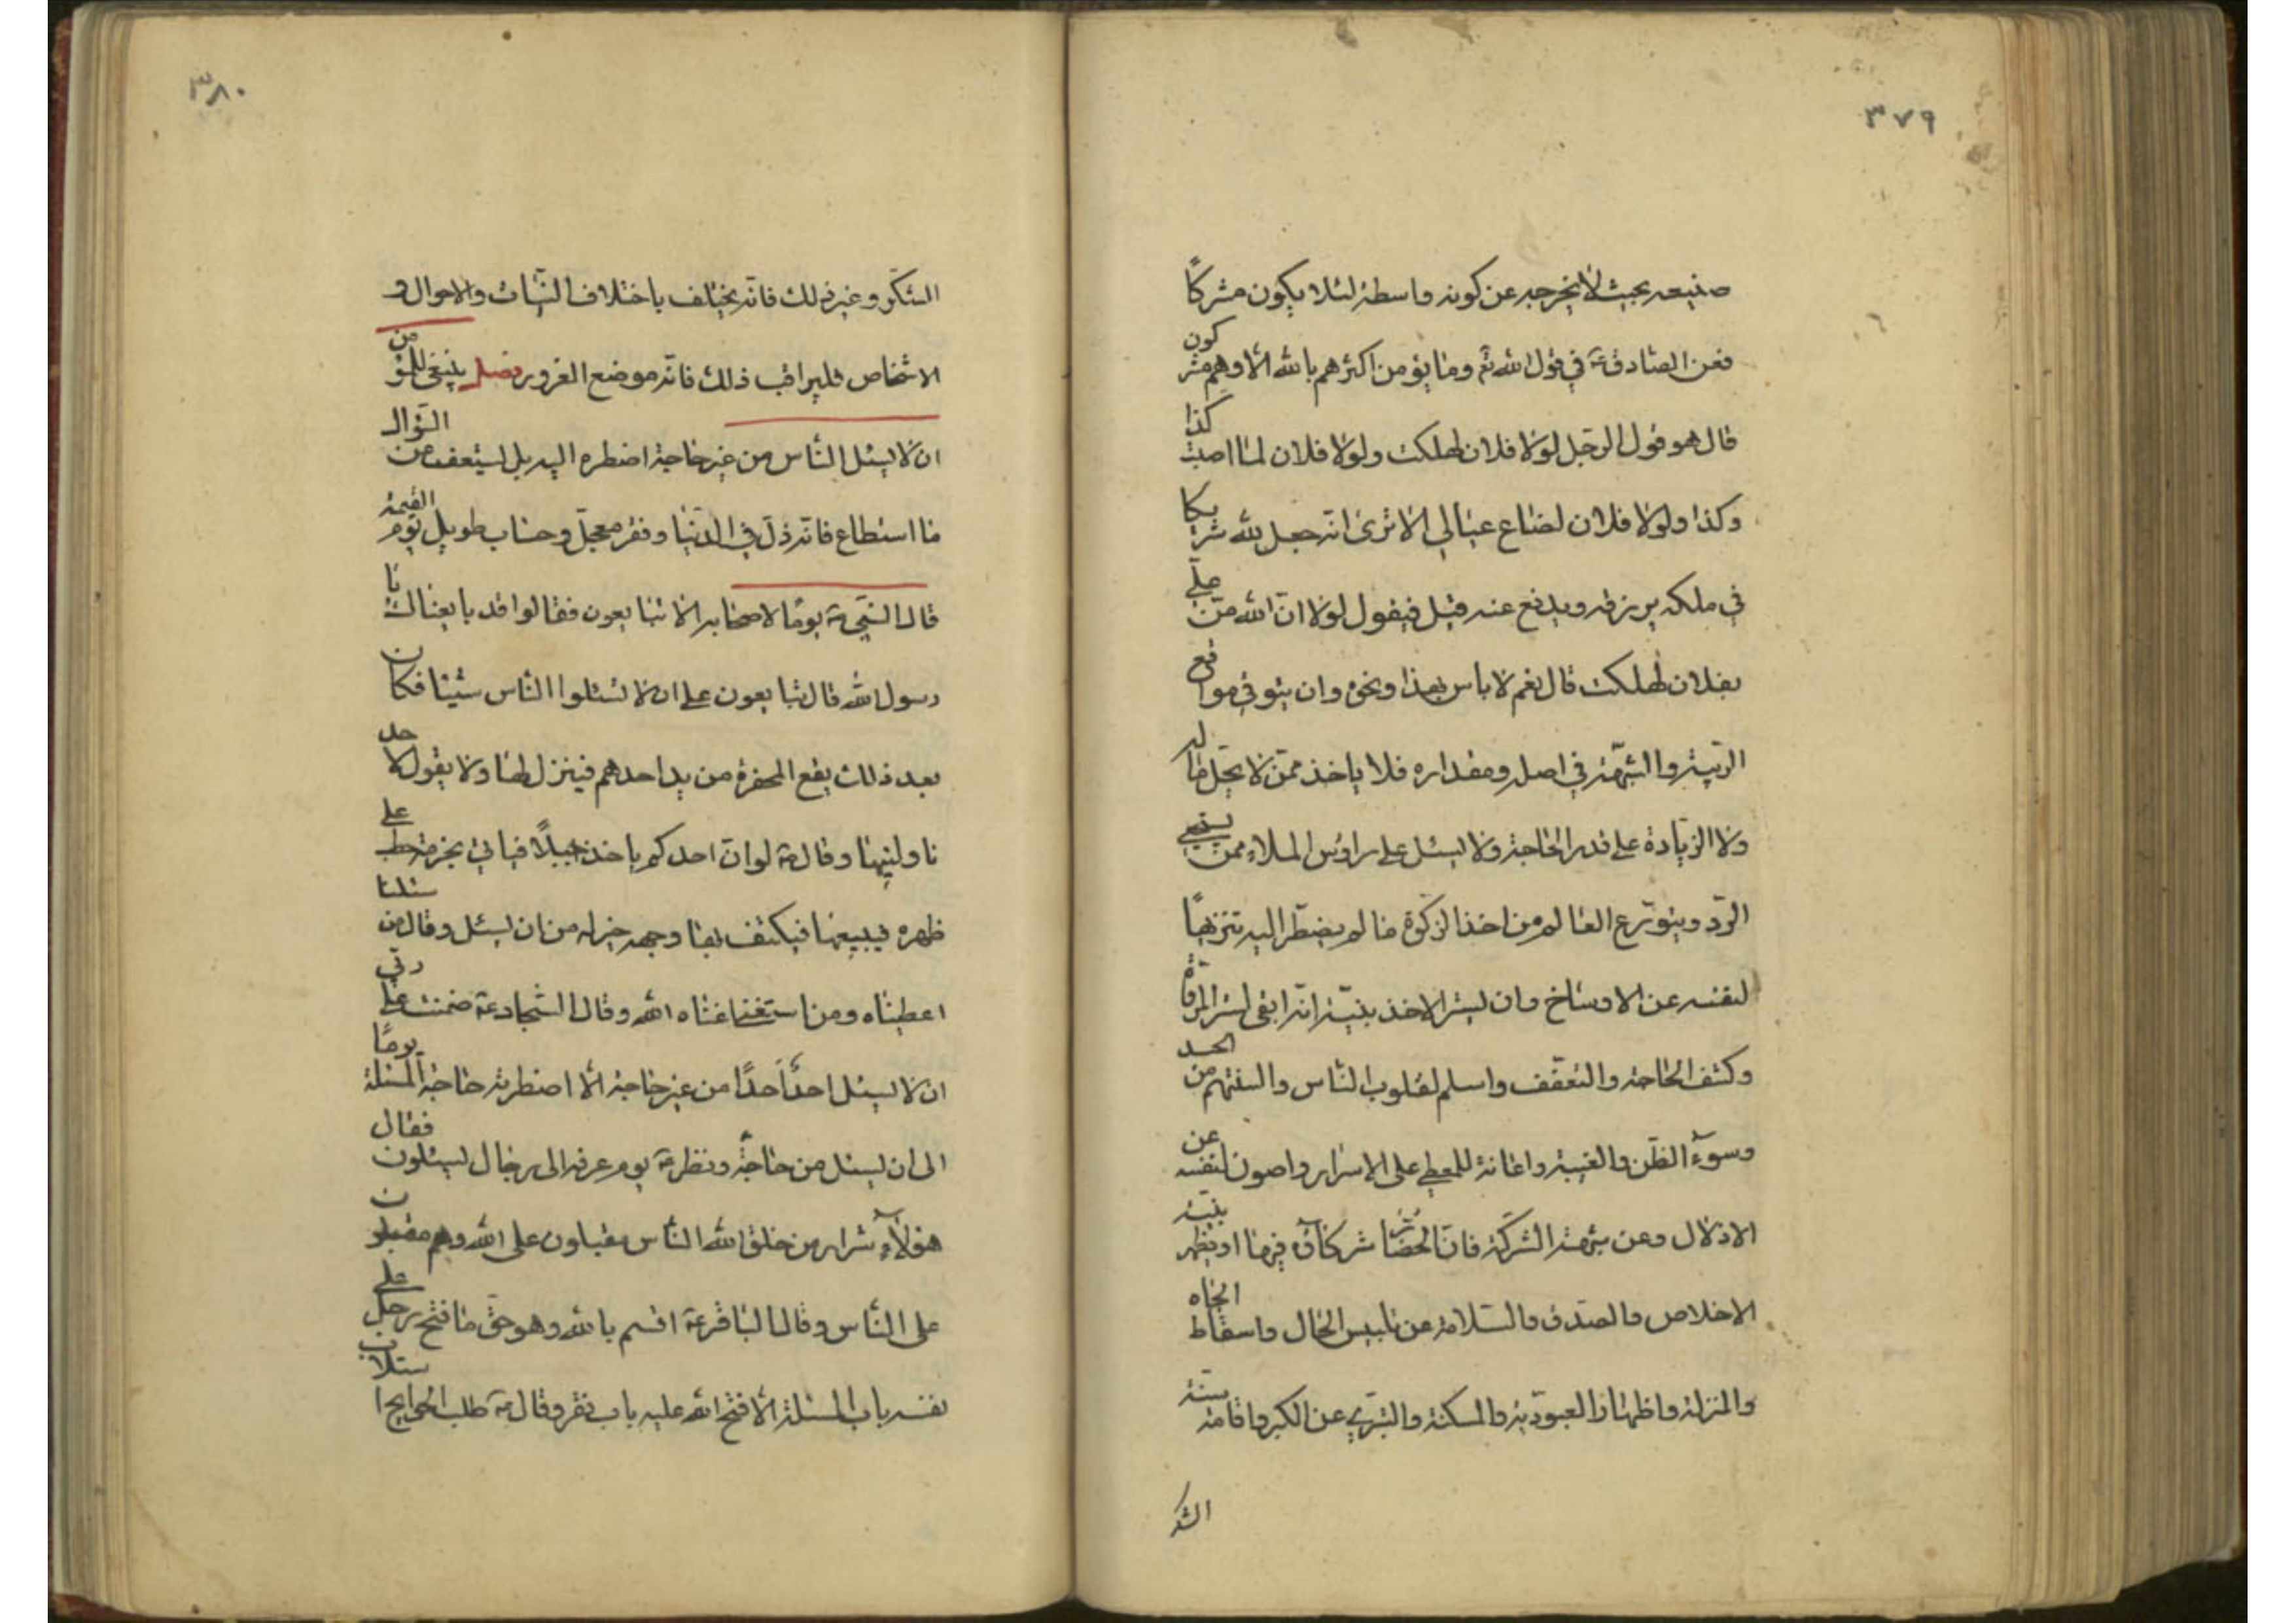 ٣٧٩
صنيعه بحيث لا يخرجه عن كونه واسطة لئلا يكون مشركاً
فعن الصّادق ع في قول الله تع وما يؤمن اكثرهم بالله الّا وهم مشركون
قال هو قول الرجل لولا فلان لهلكت ولولا فلان لما اصبت كذا
وكذا ولولا فلان لضاع عيالي الا ترى انّه جعل لله شريكا
في ملكه يرزقه ويدفع عنه قيل فيقول لولا انّ الله منّ علي
بفلان لهلكت قال نعم لا باس بهذا ونحوه وان يتوقى مواقع
الريبة والشبهة في اصله ومقداره فلا ياخذ ممّن لا يحلّ ماله
ولا الزيادة على قدر الحاجة ولا يسئل على رؤس الملاء ممن يستحيي
الردّ ويتورّع العالم من اخذ الزكوة ما لم يضطرّ اليه تنزيهاً
لنفسه عن الاوساخ وان يستر الاخذ بنيّة انّه ابقى لستر المروّة
وكشف الحاجة والتعفّف واسلم لقلوب النّاس والسنتهم من الحسد
وسوء الظّن والغيبة واعانة للمعطي على الاسرار واصون لنفسه عن
الاذلال وعن شبهة الشركة فانّ الحضّار شركاؤه فيها او يظهر بنيّة
الاخلاص والصدق والسّلامة عن تلبيس الحال واسقاط الجاه
والمنزلة واظهار العبوديّة والمسكنة والتبرّي عن الكبر واقامة سنّة
الشكر
٣٨٠
الشكر وغير ذلك فانّه يختلف باختلاف النيّات والاحوال و
الاشخاص فليراقب ذلك فانّه موضع الغرور فصل ينبغي للمؤمن
ان لا يسئل النّاس من غير حاجة اضطره اليه بل يستعفف عن السّؤال
ما استطاع فانّه ذلّ في الدّنيا وفقر معجّل وحساب طويل يوم القيمة
قال النّبي ص يومًا لاصحابه الا تبايعون فقالوا قد بايعناك يا
رسول الله قال تبايعون على ان لا تسئلوا النّاس شيئا فكان
بعد ذلك يقع المحفرة من يد احدهم فينزل لها ولا يقول لاحد
ناولنيها وقال ص لو انّ احدكم ياخذ حبلاً فياتي بحزمة حطب على
ظهره فيبيعها فيكفّ بها وجهه خير له من ان يسئل وقال من سئلنا
اعطيناه ومن استغنى اغناه الله وقال السّجاد ع ضمنت على ربّي
ان لا يسئل احد احدًا من غير حاجة الّا اضطرته حاجة المسئلة يومًا
الى ان يسئل من حاجة ونظر ع يوم عرفه الى رجال يسئلون فقال
هؤلاء شرار من خلق الله النّاس مقبلون على الله وهم مقبلون
على النّاس وقال الباقر ع اقسم بالله وهو حقّ ما فتح رجل على
نفسه باب المسئلة الّا فتح الله عليه باب فقر وقال ص طلب الحوايج استلاب